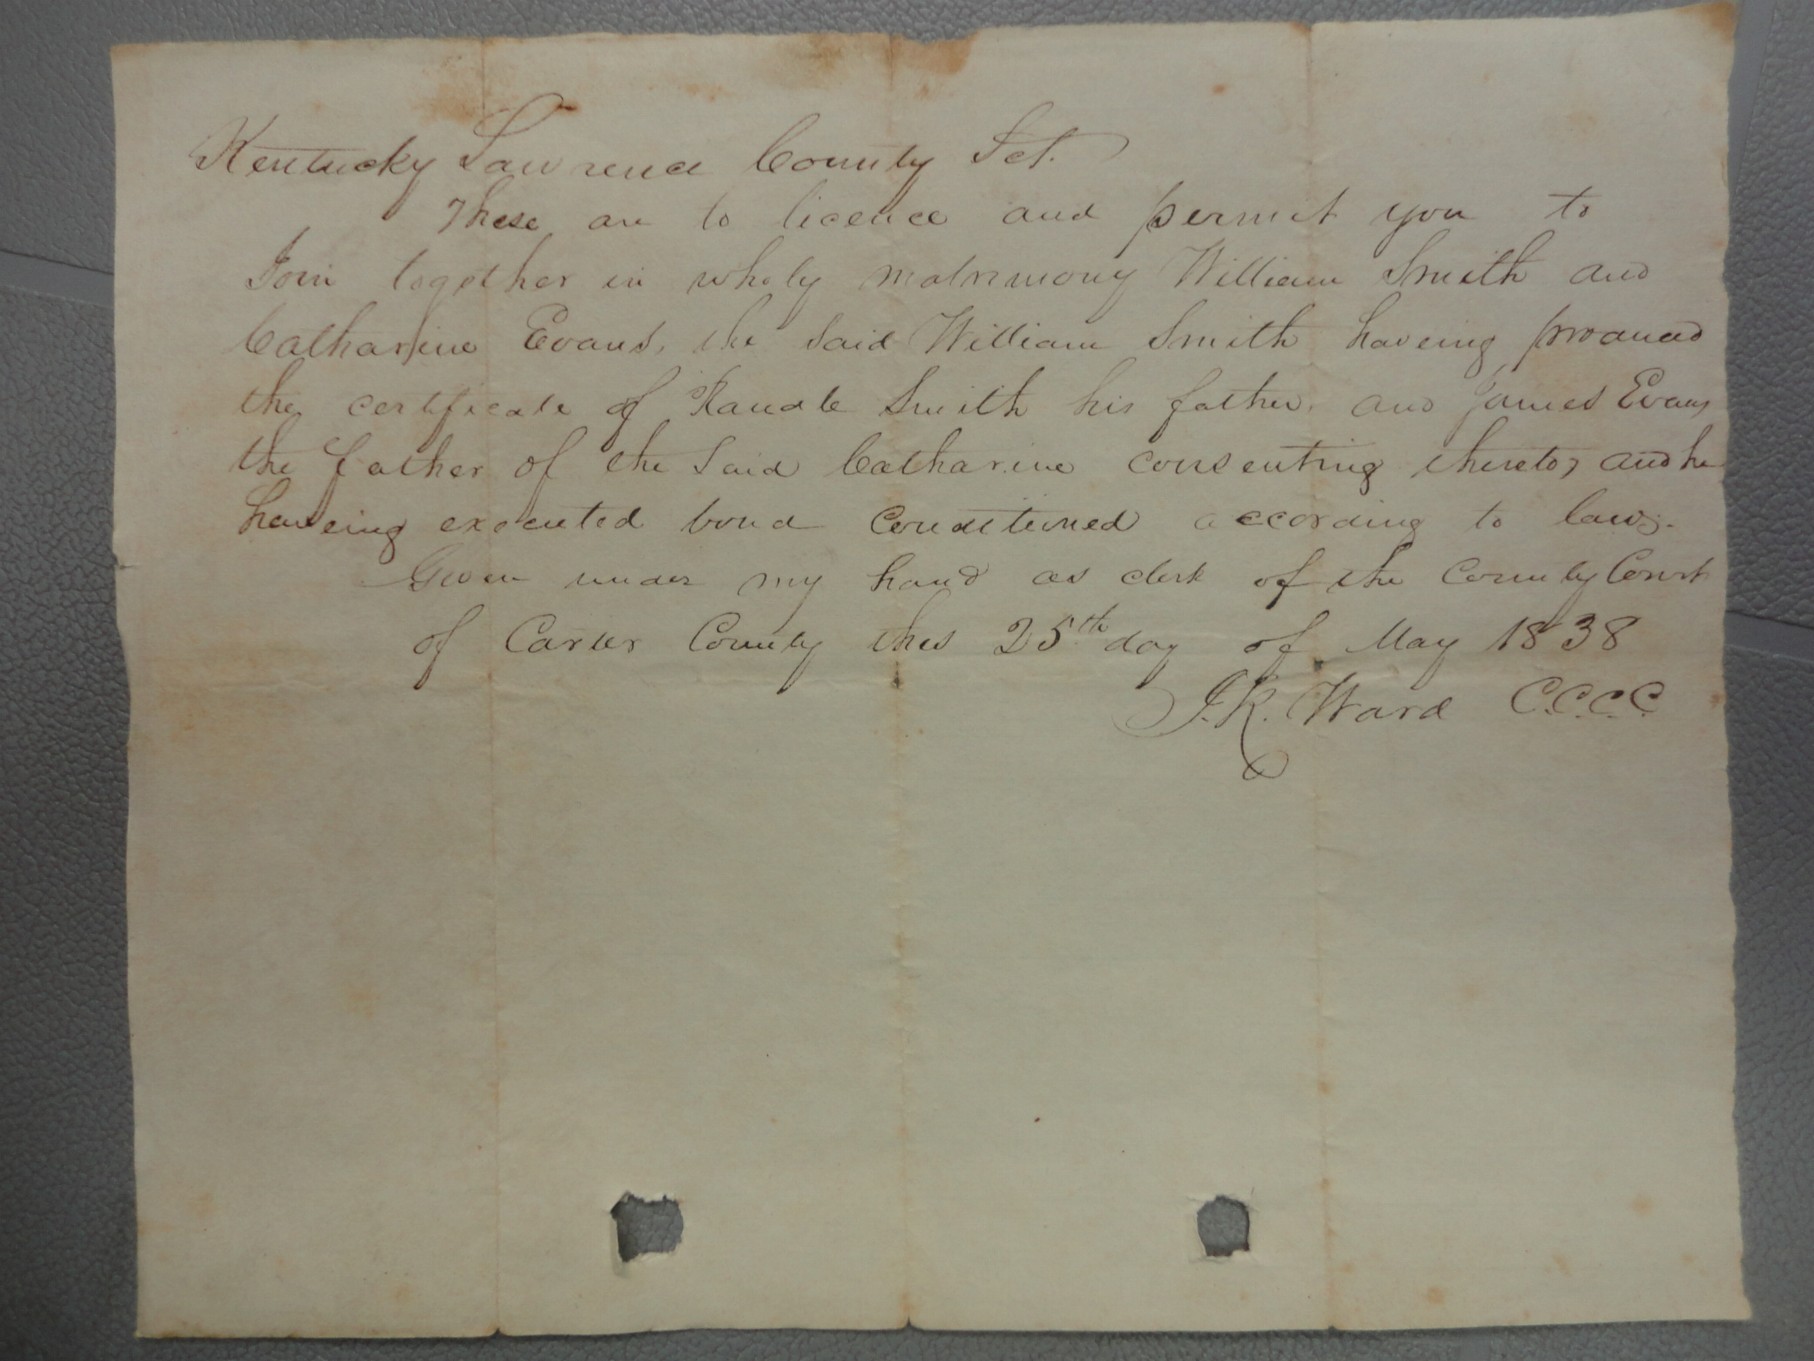 Kentucky Lawrence County Sct.
These are to licence and permit you to
Join together in wholy matrimony William Smith and
Catharine Evans, the Said William Smith haveing produced
the certificate of Randle Smith his father, and James Evans
the father of the Said Catharine consenting thereto, and he
haveing executed bond Conditioned according to law.
Given under my hand as clerk of the County Court
of Carter County this 25th day of May 1838
J.R. Ward C.C.C.C.